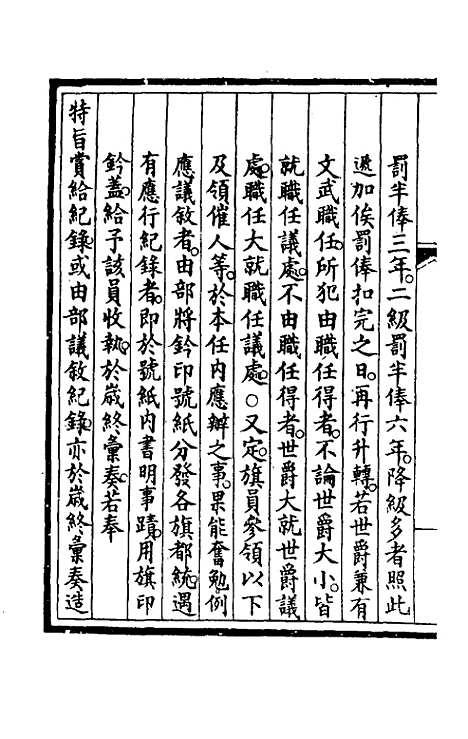 罰半俸三年。二級罰半俸六年。降級多者照此
遞加俟罰俸扣完之日。再行升轉。若世爵兼有
文武職任。所犯由職任得者。不論世爵大小。皆
就職任議處。不由職任得者。世爵大就世爵議
處。職任大就職任議處。○又定。旗員參領以下
及領催人等。於本任內應辦之事。果能奮勉。例
應議敘者。由部將鈐印號紙分發各旗都統。遇
有應行紀錄者。即於號紙內書明事蹟。用旗印
鈐蓋。給予該員收執。於歲終彙奏。若奉
特旨賞給紀錄。或由部議敘紀錄。亦於歲終彙奏造